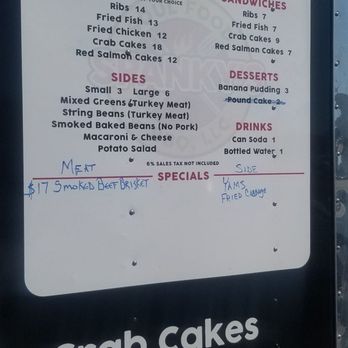 YOUR CHOICE
SANDWICHES
Ribs 14
Fried Fish 13
Fried Chicken 12
Crab Cakes 18
Red Salmon Cakes 12
Ribs 7
Fried Fish 7
Crab Cakes 9
Red Salmon Cakes 7
SIDES
Small 3 Large 6
Mixed Greens (Turkey Meat)
String Beans (Turkey Meat)
Smoked Baked Beans (No Pork)
Macaroni & Cheese
Potato Salad
DESSERTS
Banana Pudding 3
Pound Cake 2
DRINKS
Can Soda 1
Bottled Water 1
6% SALES TAX NOT INCLUDED
SPECIALS
MEAT
$17 SMOKED BEEF BRISKET
SIDE
YAMS
FRIED
Crab Cakes